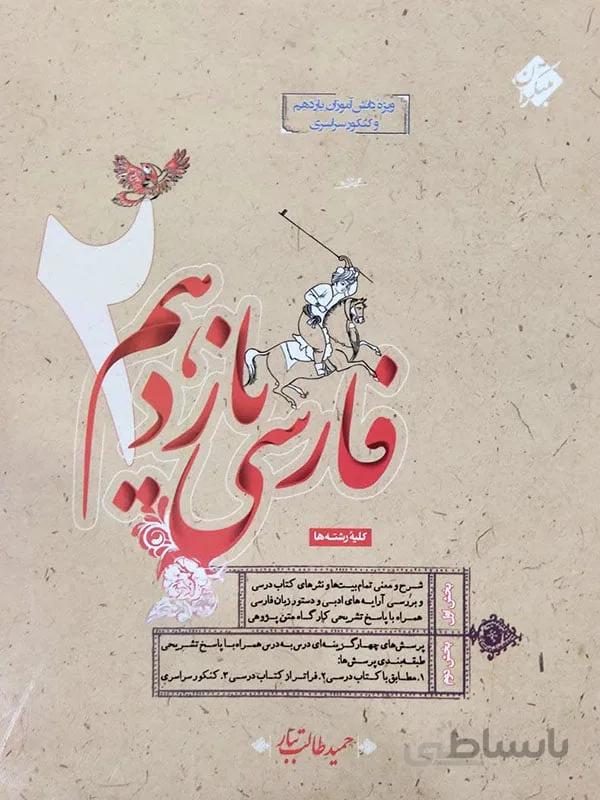 مبتکران
ویژه دانش‌آموزان یازدهم
و کنکور سراسری
۲
فارسی یازدهم
کلیهٔ رشته‌ها
بخش اول
شرح و معنی تمام بیت‌ها و نثرهای کتاب درسی
و بررسی آرایه‌های ادبی و دستور زبان فارسی
همراه با پاسخ تشریحی کارگاه متن پژوهی
بخش دوم
پرسش‌های چهارگزینه‌ای درس به درس همراه با پاسخ تشریحی
طبقه‌بندی پرسش‌ها:
۱. مطابق با کتاب درسی ۲. فراتر از کتاب درسی ۳. کنکور سراسری
حمید طالب تبار
بابساطی